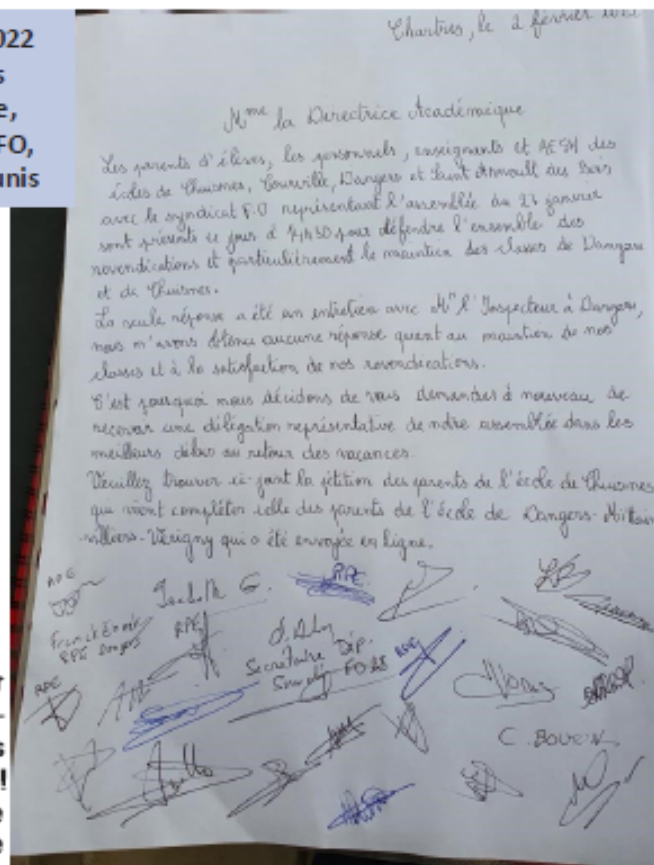 022
s
e,
FO,
unis
Chartres, le 2 février
Mme la Directrice Académique
Les parents d'élèves, les personnels, enseignants et AESH des
écoles de Chuisnes, Courville, Dangers et Saint Arnoult des Bois
avec le syndicat F.O représentant l'assemblée du 27 janvier
sont présents ce jour à pour défendre l'ensemble des
revendications et particulièrement le maintien des classes de Dangers
et de Chuisnes.
La seule réponse a été un entretien avec Mr l'Inspecteur à Dangers,
nous n'avons obtenu aucune réponse quant au maintien de nos
classes et à la satisfaction de nos revendications.
C'est pourquoi nous décidons de vous demander à nouveau de
recevoir une délégation représentative de notre assemblée dans les
meilleurs délais au retour des vacances.
Veuillez trouver ci-joint la pétition des parents de l'école de Chuisnes
qui vient compléter celle des parents de l'école de Dangers-Mittain
villiers-Vérigny qui a été envoyée en ligne.
RPE
G.
RPE
RPE Dangers
Secrétaire Dép.
FO 28
RPE
RPE
C. BOURIN
r
-
s
!
e
e